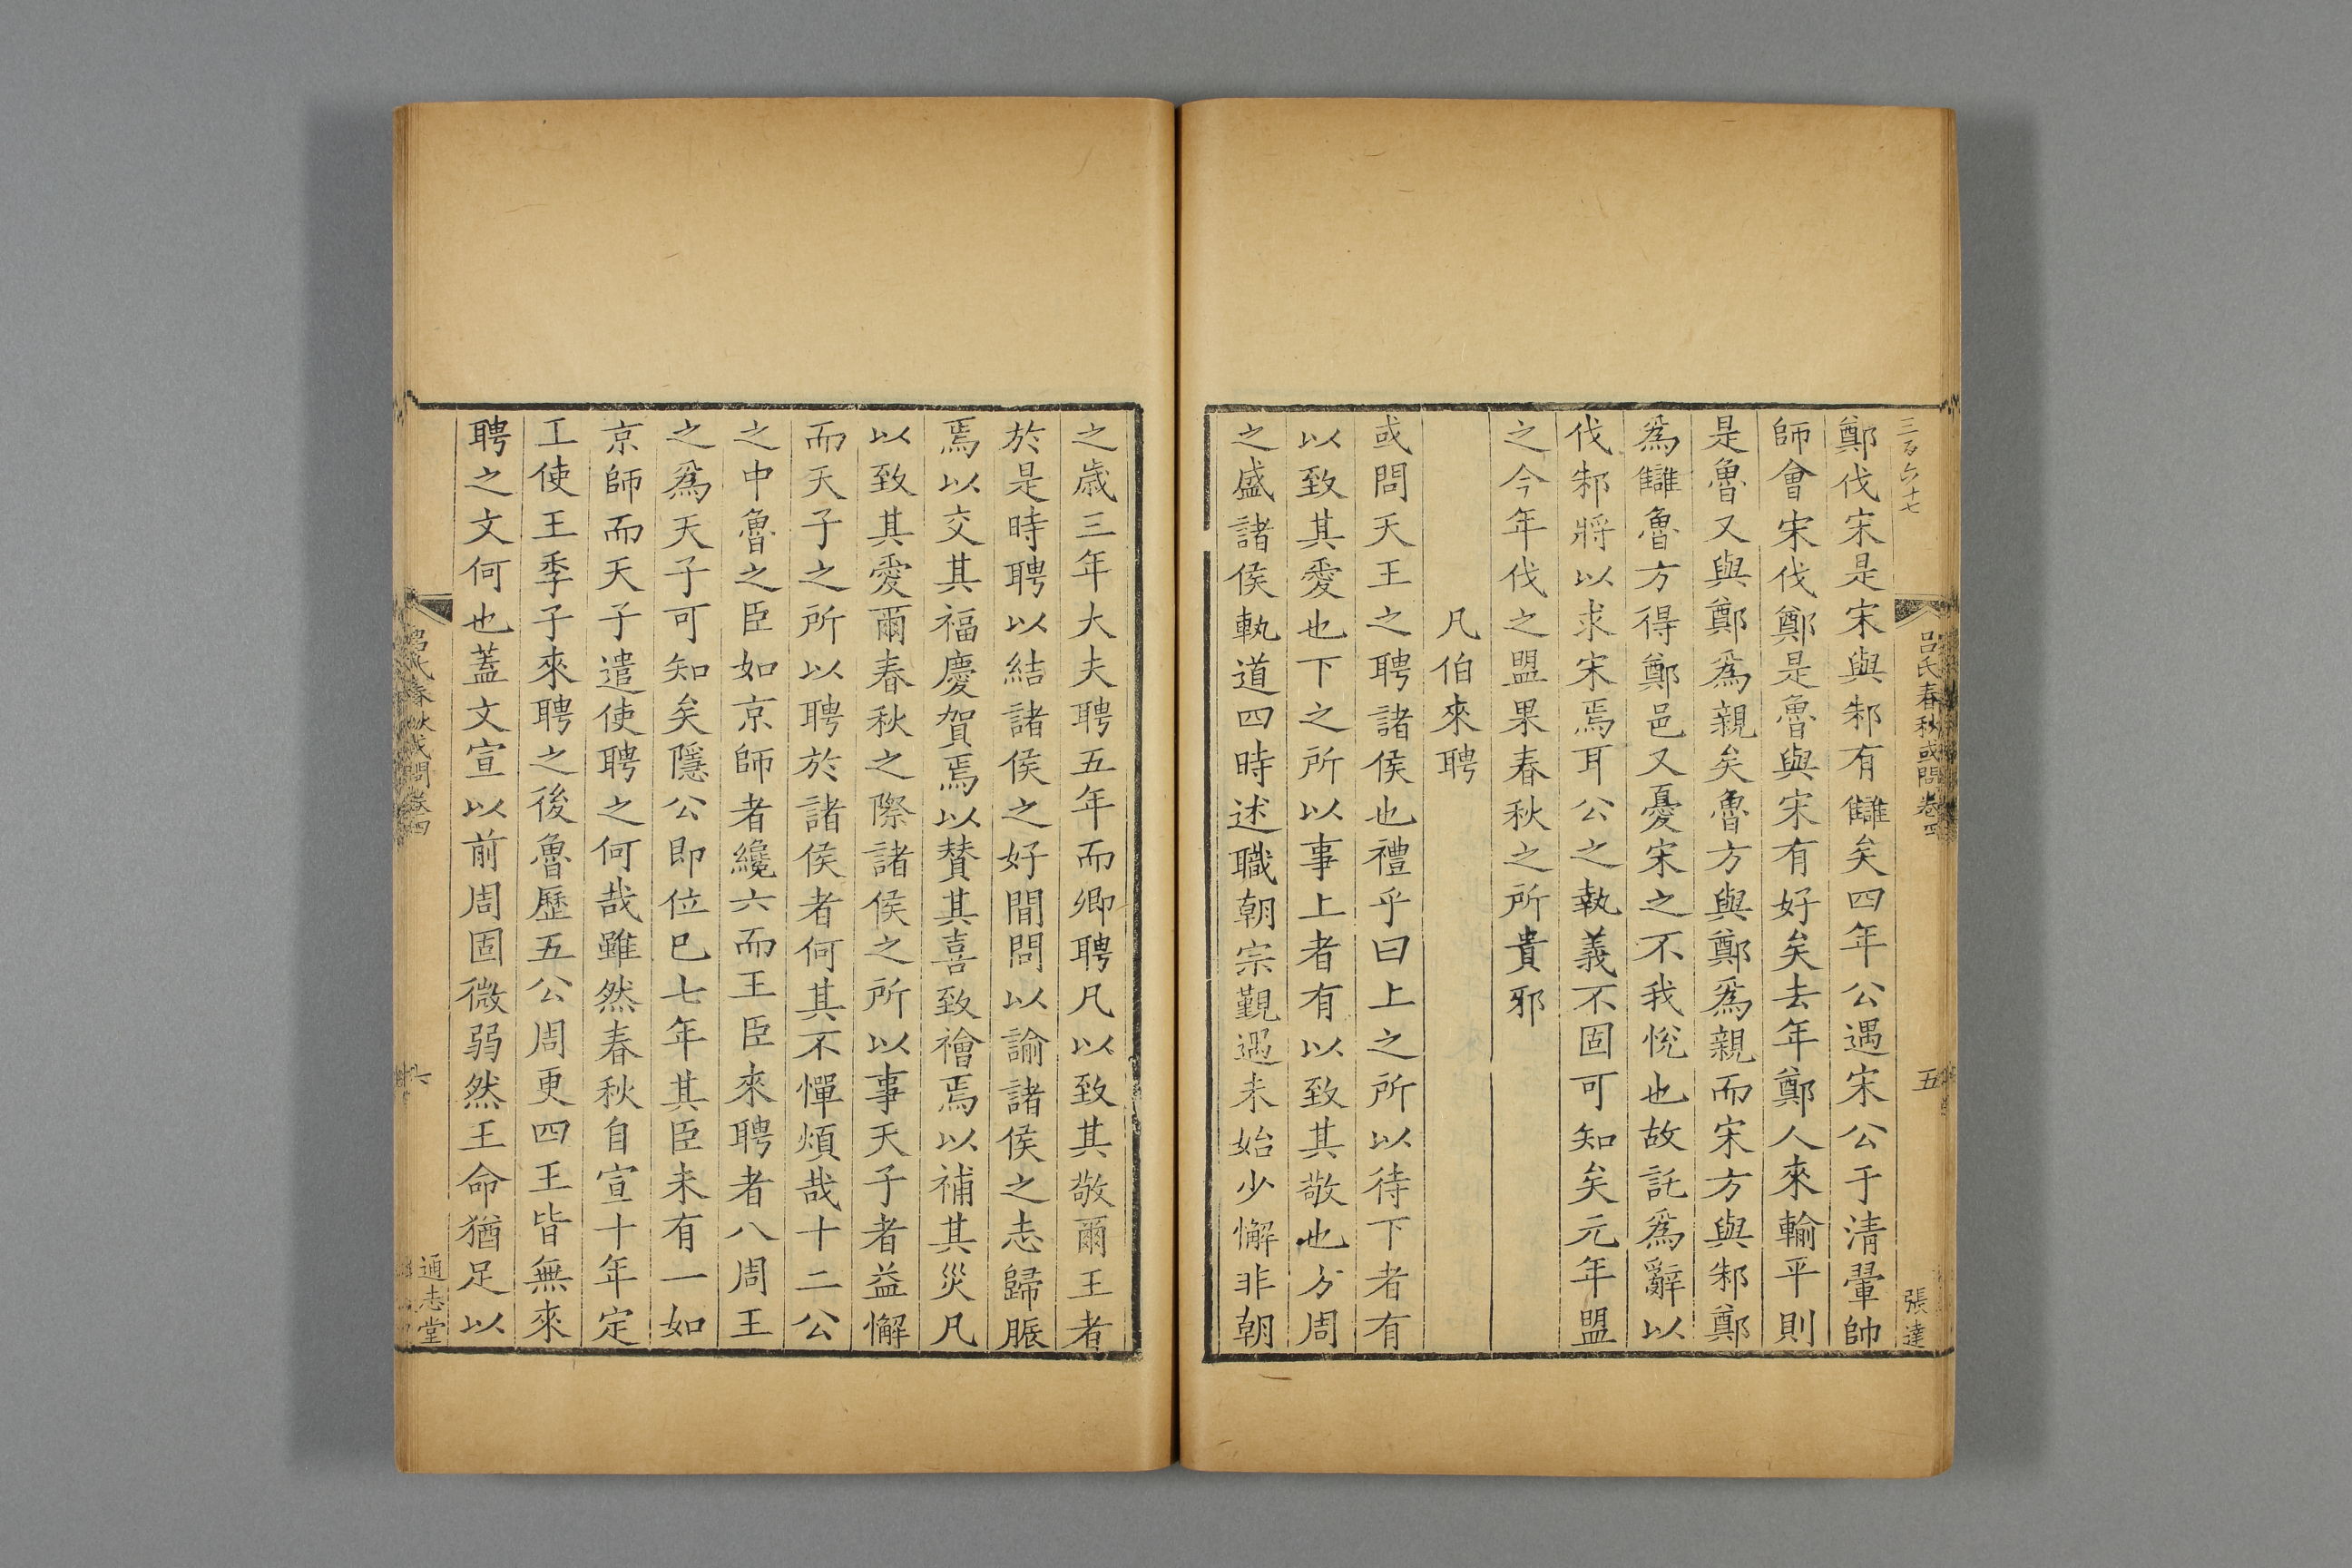 三百六十七
呂氏春秋或問卷四
五
張達
鄭伐宋是宋與邾有讎矣四年公遇宋公于淸翬帥
師會宋伐鄭是魯與宋有好矣去年鄭人來輸平則
是魯又與鄭爲親矣魯方與鄭爲親而宋方與邾鄭
爲讎魯方得鄭邑又憂宋之不我悅也故託爲辭以
伐邾將以求宋焉耳公之執義不固可知矣元年盟
之今年伐之盟果春秋之所貴邪
凡伯來聘
或問天王之聘諸侯也禮乎曰上之所以待下者有
以致其愛也下之所以事上者有以致其敬也方周
之盛諸侯執道四時述職朝宗覲遇未始少懈非朝
之歲三年大夫聘五年而卿聘凡以致其敬爾王者
於是時聘以結諸侯之好閒問以諭諸侯之志歸脤
焉以交其福慶賀焉以賛其喜致禬焉以補其災凡
以致其愛爾春秋之際諸侯之所以事天子者益懈
而天子之所以聘於諸侯者何其不憚煩哉十二公
之中魯之臣如京師者纔六而王臣來聘者八周王
之爲天子可知矣隱公即位巳七年其臣未有一如
京師而天子遣使聘之何哉雖然春秋自宣十年定
王使王季子來聘之後魯歷五公周更四王皆無來
聘之文何也蓋文宣以前周固微弱然王命猶足以
呂氏春秋或問卷四
六
通志堂